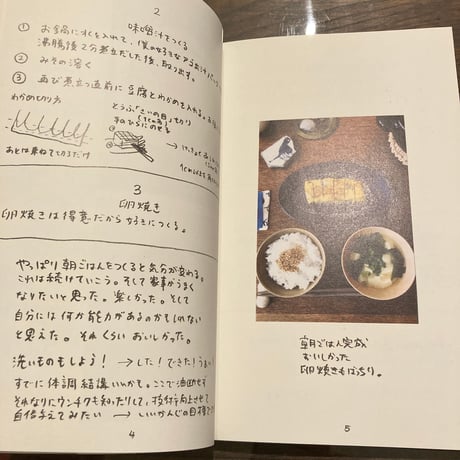 2
味噌汁をつくる
① お鍋に水を入れて、僕の好きな
沸騰後2分煮立だした後、取り出す。
② みその溶く
③ 再び煮立つ直前に豆腐とわかめを入れる。
わかめ切り方
とうふ「さいの目」切り
手のひらにのせる
あとは重ねて切るだけ
3
卵焼き
卵焼きは得意だから好きにつくる。
やっぱり朝ごはんをつくると気分が変わる。
これは続けていこう。そして家事がうまく
なりたいと思った。楽しかった。そして
自分には何か能力があるのかもしれない
と思えた。それくらいおいしかった。
洗いものもしよう! → した!できた!うまい!
すでに体調結構いいかも。ここで油断せず
それなりにウンチクも知ったりして、技術向上させて
自信与えてみたい → いいかんじの目標
4
朝ごはん完成
おいしかった
卵焼きもばっちり。
5